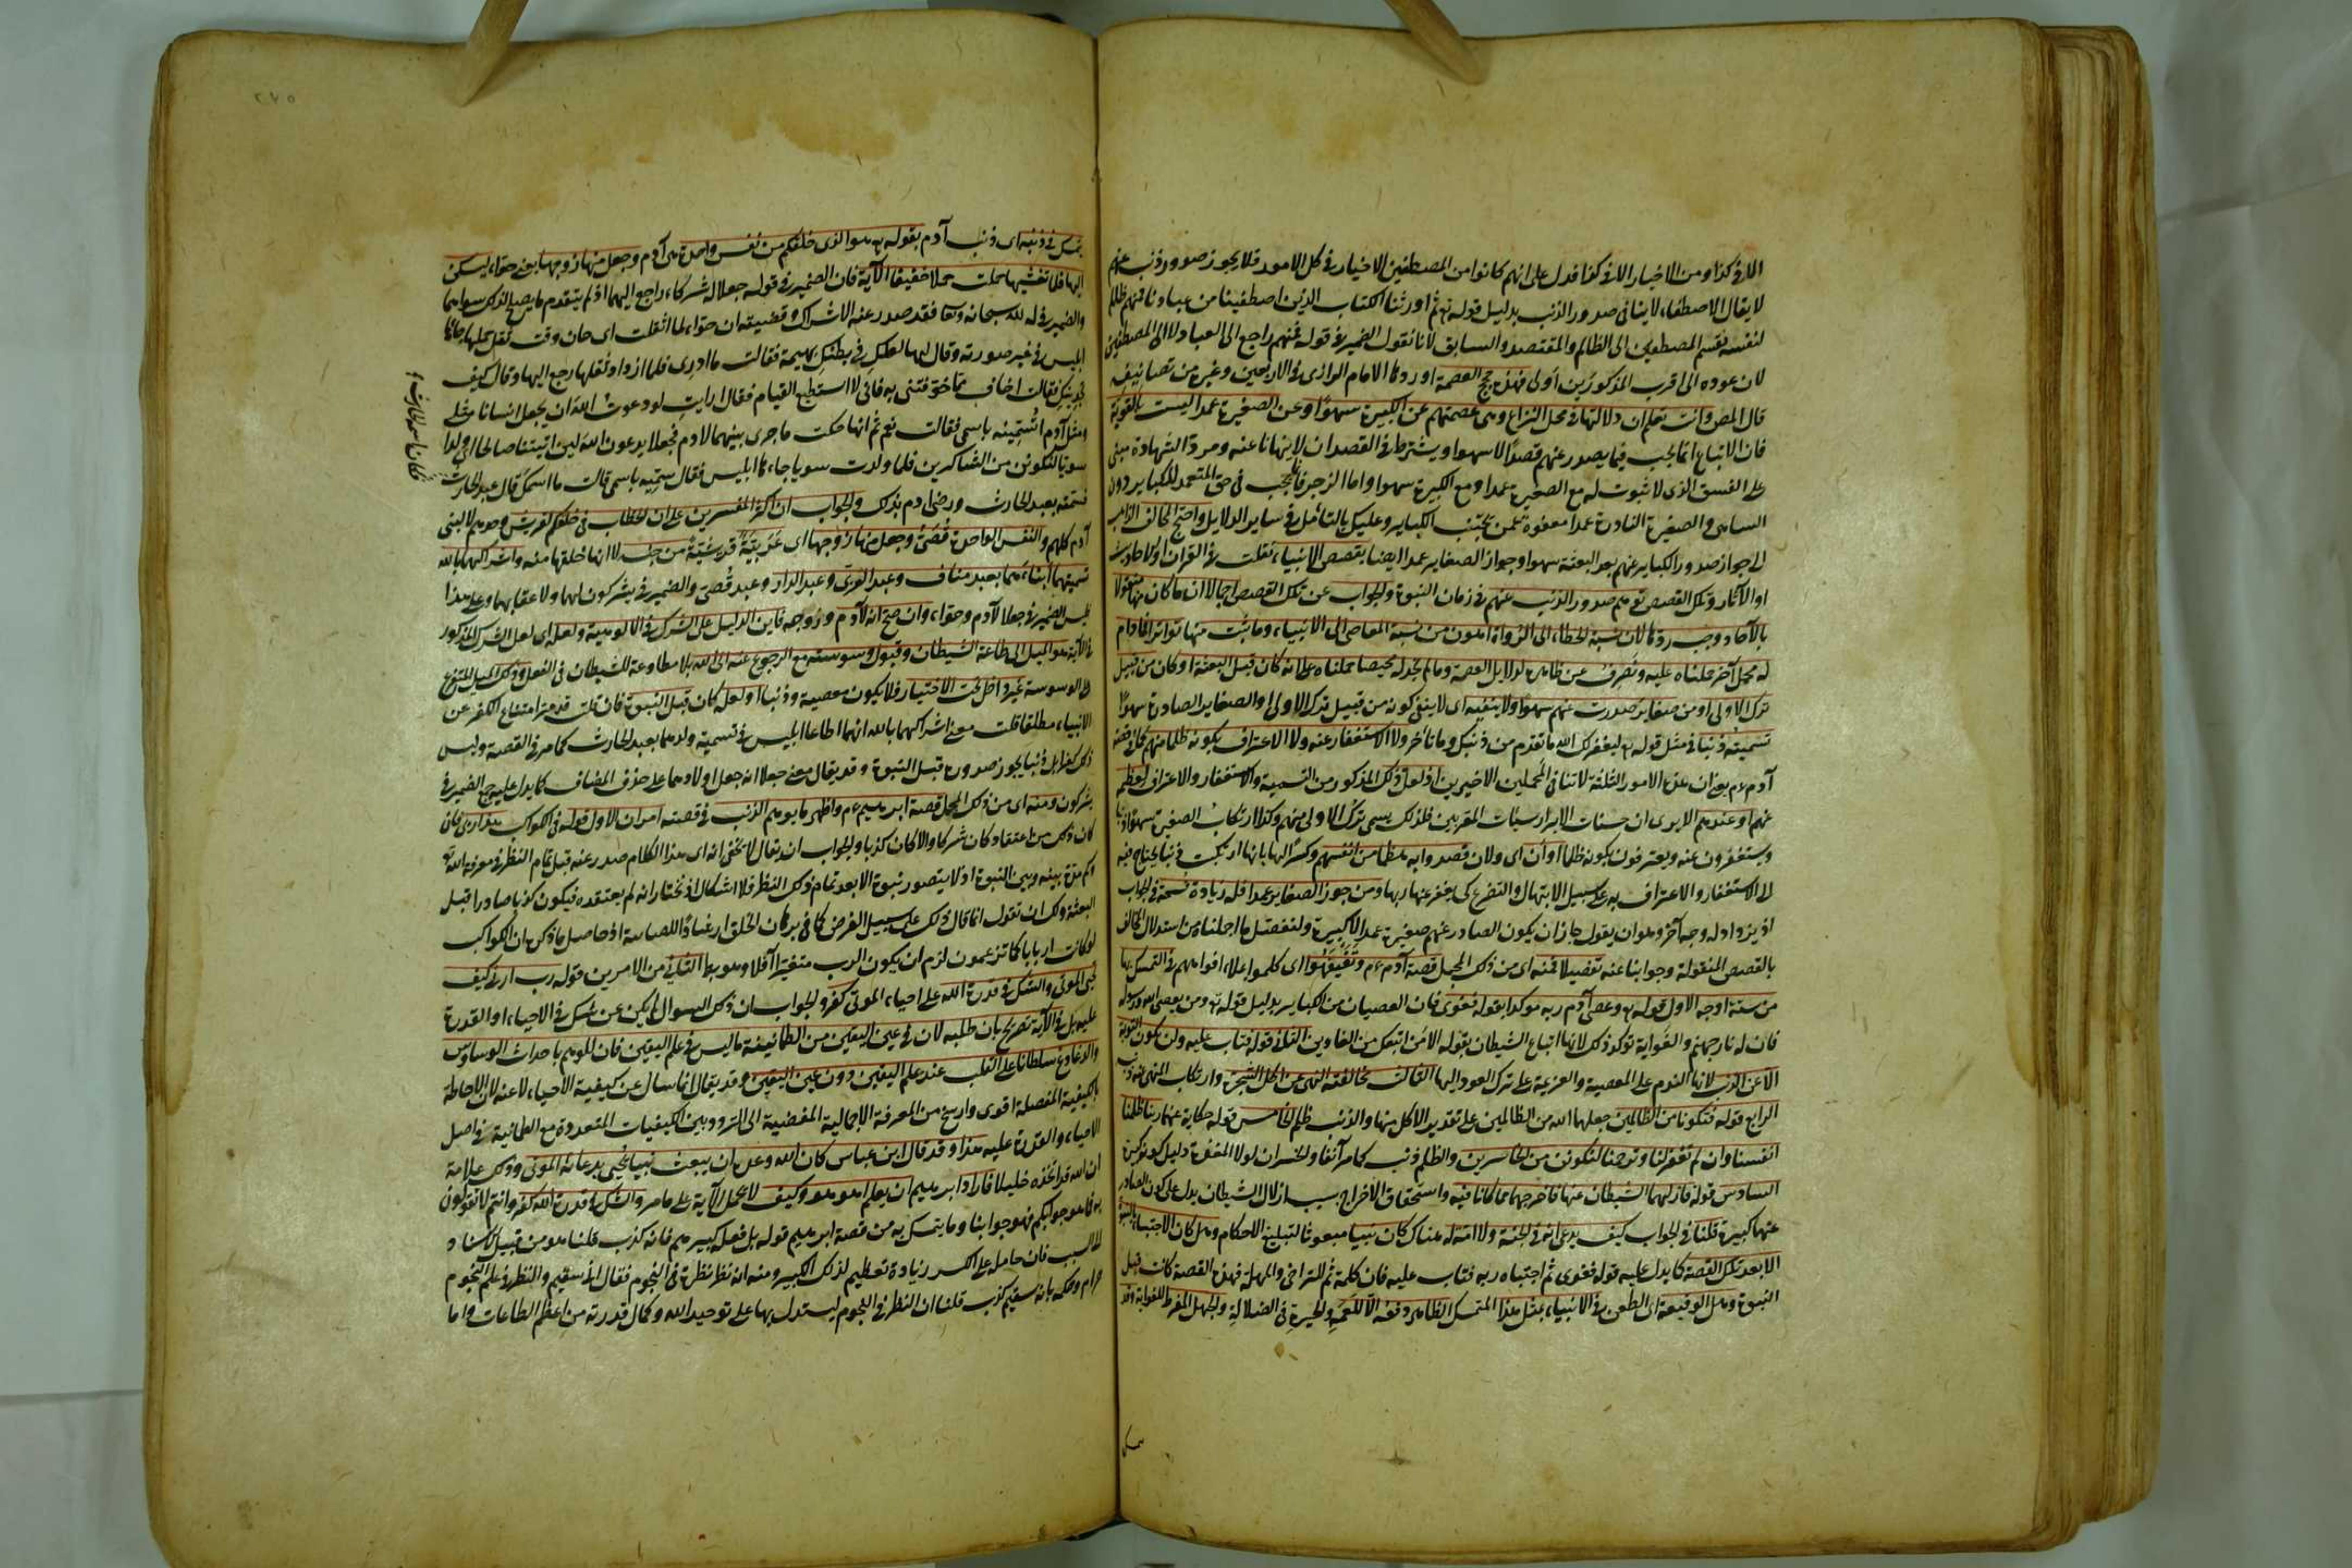 الا فى كذا ومن الاخيار الا فى كذا فدل على انهم كانوا من المصطفين الاخيار فى كل الامور فلا يجوز صدور ذنب عنهم
لا يقال الاصطفاء لا ينافى صدور الذنب بدليل قوله تع ثم اورثنا الكتاب الذين اصطفينا من عبادنا فمنهم ظالم
لنفسه فقسم المصطفين الى الظالم والمقتصد والسابق لانا نقول الضمير فى قوله فمنهم راجع الى العباد لا الى المصطفين
لان عوده الى اقرب المذكورين اولى فهذه حجج العصمة اوردها الامام الرازى فى الاربعين وغيره من تصانيفه
قال المص وانت تعلم ان دلالتها فى محل النزاع وهى عصمتهم عن الكبيرة سهوا وعن الصغيرة عمدا ليست بالقوية
فان الاتباع انما يجب فيما يصدر عنهم قصدا لا سهوا ويشترط فى القصد ان لا ينهانا عنه ومرد الشهادة مبنى
على الفسق الذى لا ثبوت له مع الصغيرة عمدا ومع الكبيرة سهوا واما الزجر فانما يجب فى حق المتعمد للكباير دون
الساهى والصغيرة النادرة عمدا معفوة عمن يجتنب الكباير وعليك بالتأمل فى ساير الدلايل واحتج المخالف الذاهب
الى جواز صدور الكباير عنهم بعد البعثة سهوا وجواز الصغاير عمدا ايضا بقصص الانبياء نقلت فى القرآن او الاحاديث
او الآثار وتلك القصص توهم صدور الذنب عنهم فى زمان النبوة والجواب عن تلك القصص اجمالا ان ما كان منها منقولا
بالآحاد وجب ردها لان نسبة الخطاء الى الرواة اهون من نسبة المعاصى الى الانبياء وما ثبت منها تواترا فما دام
له محمل آخر حملناه عليه ونصرف عن ظاهره لدلايل العصمة وما لم نجد له محيصا حملناه على انه كان قبل البعثة او كان من قبيل
ترك الاولى او من صغاير صدرت عنهم سهوا ولا ينفيه اى لا ينفى كونه من قبيل ترك الاولى او الصغاير الصادرة سهوا
تسميته ذنبا فى مثل قوله تع ليغفر لك الله ما تقدم من ذنبك وما تأخر ولا الاستغفار عنه ولا الاعتراف بكونه ظلما منهم كما فى قصة
آدم عم يعنى ان هذه الامور الثلثة لا تنافى المحملين الاخيرين اذ لعل ذلك المذكور من التسمية والاستغفار والاعتراف لعظمه
عنهم او عندهم الا يرى ان حسنات الابرار سيئات المقربين فلذلك يسمى ترك الاولى منهم وكذا ارتكاب الصغيرة سهوا ذنبا
ويستغفرون عنه ويعترفون بكونه ظلما او أن اى ولان قصدوا به هضما من انفسهم وكسرا لها بانها ارتكبت ذنبا يحتاج فيه
الى الاستغفار والاعتراف به على سبيل الابتهال والتضرع كى يغفر عنها ربها ومن جوز الصغاير عمدا فله زيادة فسحة فى الجواب
اذ يزداد له وجه آخر وهو ان يقول جاز ان يكون الصادر عنهم صغيرة عمدا لا كبيرة ولنفصل ما اجملناه من استدلال المخالف
بالقصص المنقولة وجوابنا عنه تفصيلا فمنه اى من ذلك المجمل قصة آدم عم وتفيهقوا اى كلموا علاء افواههم فى التمسك بها
من ستة اوجه الاول قوله تع وعصى آدم ربه موكدا بقوله فغوى فان العصيان من الكباير بدليل قوله تع ومن يعص الله ورسوله
فان له نار جهنم والغواية توكد ذلك لانها اتباع الشيطان بقوله الا من اتبعك من الغاوين الثانى قوله فتاب عليه ولن تكون التوبة
الا عن الذنب لانها الندم على المعصية والعزيمة على ترك العود اليها الثالث مخالفته النهى عن اكل الشجرة وارتكاب المنهى عنه ذنب
الرابع قوله فتكونا من الظالمين جعلهما الله من الظالمين على تقدير الاكل منها والذنب ظلم الخامس قوله حكاية عنهما ربنا ظلمنا
انفسنا وان لم تغفر لنا وترحمنا لنكونن من الخاسرين والظلم ذنب كما مر آنفا والخسران لولا المغفرة دليل كونه كبيرة
السادس قوله فازلهما الشيطان عنها فاخرجهما مما كانا فيه واستحقاق الاخراج بسبب ازلال الشيطان يدل على كون الصادر
عنهما كبيرة قلنا فى الجواب كيف يدعى انه فى الجنة ولا امة له هناك كان نبيا مبعوثا لتبليغ الاحكام وهل كان الاجتباء بالنبوة
الا بعد تلك القصة كما يدل عليه قوله فغوى ثم اجتباه ربه فتاب عليه فان كلمة ثم للتراخى والمهلة فهذه القصة كانت قبل
النبوة وهل الوقيعة اى الطعن فى الانبياء بمثل هذا المتمسك الظاهر دفعه الا للعمه والحيرة فى الضلالة والجهل المفرط للغواية وقد
تمسك
تمسك فى ذنبه اى ذنب آدم بقوله تع هو الذى خلقكم من نفس واحدة هى آدم وجعل منها زوجها يعنى حواء ليسكن
اليها فلما تغشيها حملت حملا خفيفا الآية فان الضمير فى قوله جعلا له شركاء راجع اليهما اذ لم يتقدم ما يصلح لذلك سواهما
والضمير فى له لله سبحانه وتعا فقد صدر عنه الاشراك وقصته ان حواء لما اثقلت اى حان وقت ثقل حملها جاءها
ابليس فى غير صورته وقال لها لعل فى بطنك بهيمة فقالت ما ادرى فلما ازداد ثقلها رجع اليها وقال كيف
تجدينك فقالت اخاف مما خوفتنى به فانى لا استطيع القيام فقال ارايت لو دعوت الله ان يجعل انسانا مثلى
ومثل آدم اتسمينه باسمى فقالت نعم ثم انها حكت ما جرى بينهما لآدم فجعلا يدعون الله لئن آتيتنا صالحا اى ولدا
سويا لنكونن من الشاكرين فلما ولدت سويا جاءها ابليس فقال سميه باسمى قالت ما اسمك قال عبد الحارث
وكان اسمه الحارث
فسمته بعبد الحارث ورضى آدم بذلك والجواب ان اكثر المفسرين على ان الخطاب فى خلقكم لقريش وحدهم لا لبنى
آدم كلهم والنفس الواحدة قصى وجعل منها زوجها اى عربية قرشية من جنسه لا انها خلقها منه واشراكهما بالله
تسميتهما ابناءهما بعبد مناف وعبد العزى وعبد الدار وعبد قصى والضمير فى يشركون لهما ولاعقابهما وعلى هذا
فليس الضمير فى جعلا لآدم وحواء وان صح انه لآدم وزوجه فاين الدليل على الشرك فى الالوهية ولعله اى لعل الشرك المذكور
فى الآية هو الميل الى طاعة الشيطان وقبول وسوسته مع الرجوع عنه الى الله بلا مطاوعة للشيطان فى الفعل وذلك الميل المتفرع
على الوسوسة غير داخل تحت الاختيار فلا يكون معصية وذنبا او لعله كان قبل النبوة فان قلت قد مر امتناع الكفر عن
الانبياء مطلقا قلت معنى اشراكهما بالله انهما اطاعا ابليس فى تسمية ولدهما بعبد الحارث كما مر فى القصة وليس
ذلك كفرا بل ذنبا يجوز صدوره قبل النبوة وقد يقال معنى جعلا انه جعل اولادهما على حذف المضاف كما يدل عليه جمع الضمير فى
يشركون ومنه اى من ذلك المجمل قصة ابرهيم عم واظهر ما يوهم الذنب فى قصته امران الاول قوله فى الكواكب هذا ربى فان
كان ذلك عن اعتقاد كان شركا والا كان كذبا والجواب ان يقال لا يخفى انه اى هذا الكلام صدر عنه قبل تمام النظر فى معرفة الله تع
وكم مدة بينه وبين النبوة اذ لا يتصور نبوة الا بعد تمام ذلك النظر فلا اشكال اذ نختار انه لم يعتقده فيكون كذبا صادرا قبل
البعثة ولك ان تقول انما قال ذلك على سبيل الفرض كما فى برهان الخلف ارشادا للصابئة اذ حاصل ما ذكره ان الكواكب
لو كانت اربابا كما تزعمون لزم ان يكون الرب متغيرا آفلا وهو بط الثانى من الامرين قوله رب ارنى كيف
تحيى الموتى والشك فى قدرة الله على احياء الموتى كفر والجواب ان ذلك السوال لم يكن عن شك فى الاحياء او القدرة
عليه بل فى الآية تصريح بان طلبه لان فى عين اليقين من الطمانينة ما ليس فى علم اليقين فان للوهم باحداث الوساوس
والدغادغ سلطانا على القلب عند علم اليقين دون عين اليقين وقد يقال انما سال عن كيفية الاحياء لا عنه لان الاحاطة
بالكيفية المفصلة اقوى وارسخ من المعرفة الاجمالية المفضية الى التردد بين الكيفيات المتعددة مع الطمانينة فى اصل
الاحياء والقدرة عليه هذا وقد قال ابن عباس كان الله وعده ان يبعث نبيا يحيى بدعائه الموتى وذلك علامة
ان الله قد اتخذه خليلا فاراد ابرهيم ان يعلم اهو هو وكيف لا تحمل الآية على ما مر والشك فى قدرة الله كفر وانتم لا تقولون
به فما هو جوابكم فهو جوابنا وما يتمسك به من قصة ابرهيم قوله بل فعله كبيرهم فانه كذب قلنا هو من قبيل الاسناد
الى السبب فان حامله على الكسر زيادة تعظيم لذلك الكبير ومنه انه نظر نظرة فى النجوم فقال انى سقيم والنظر فى علم النجوم
حرام وحكمه بانه سقيم كذب قلنا ان النظر فى النجوم ليستدل بها على توحيد الله وكمال قدرته من اعظم الطاعات واما